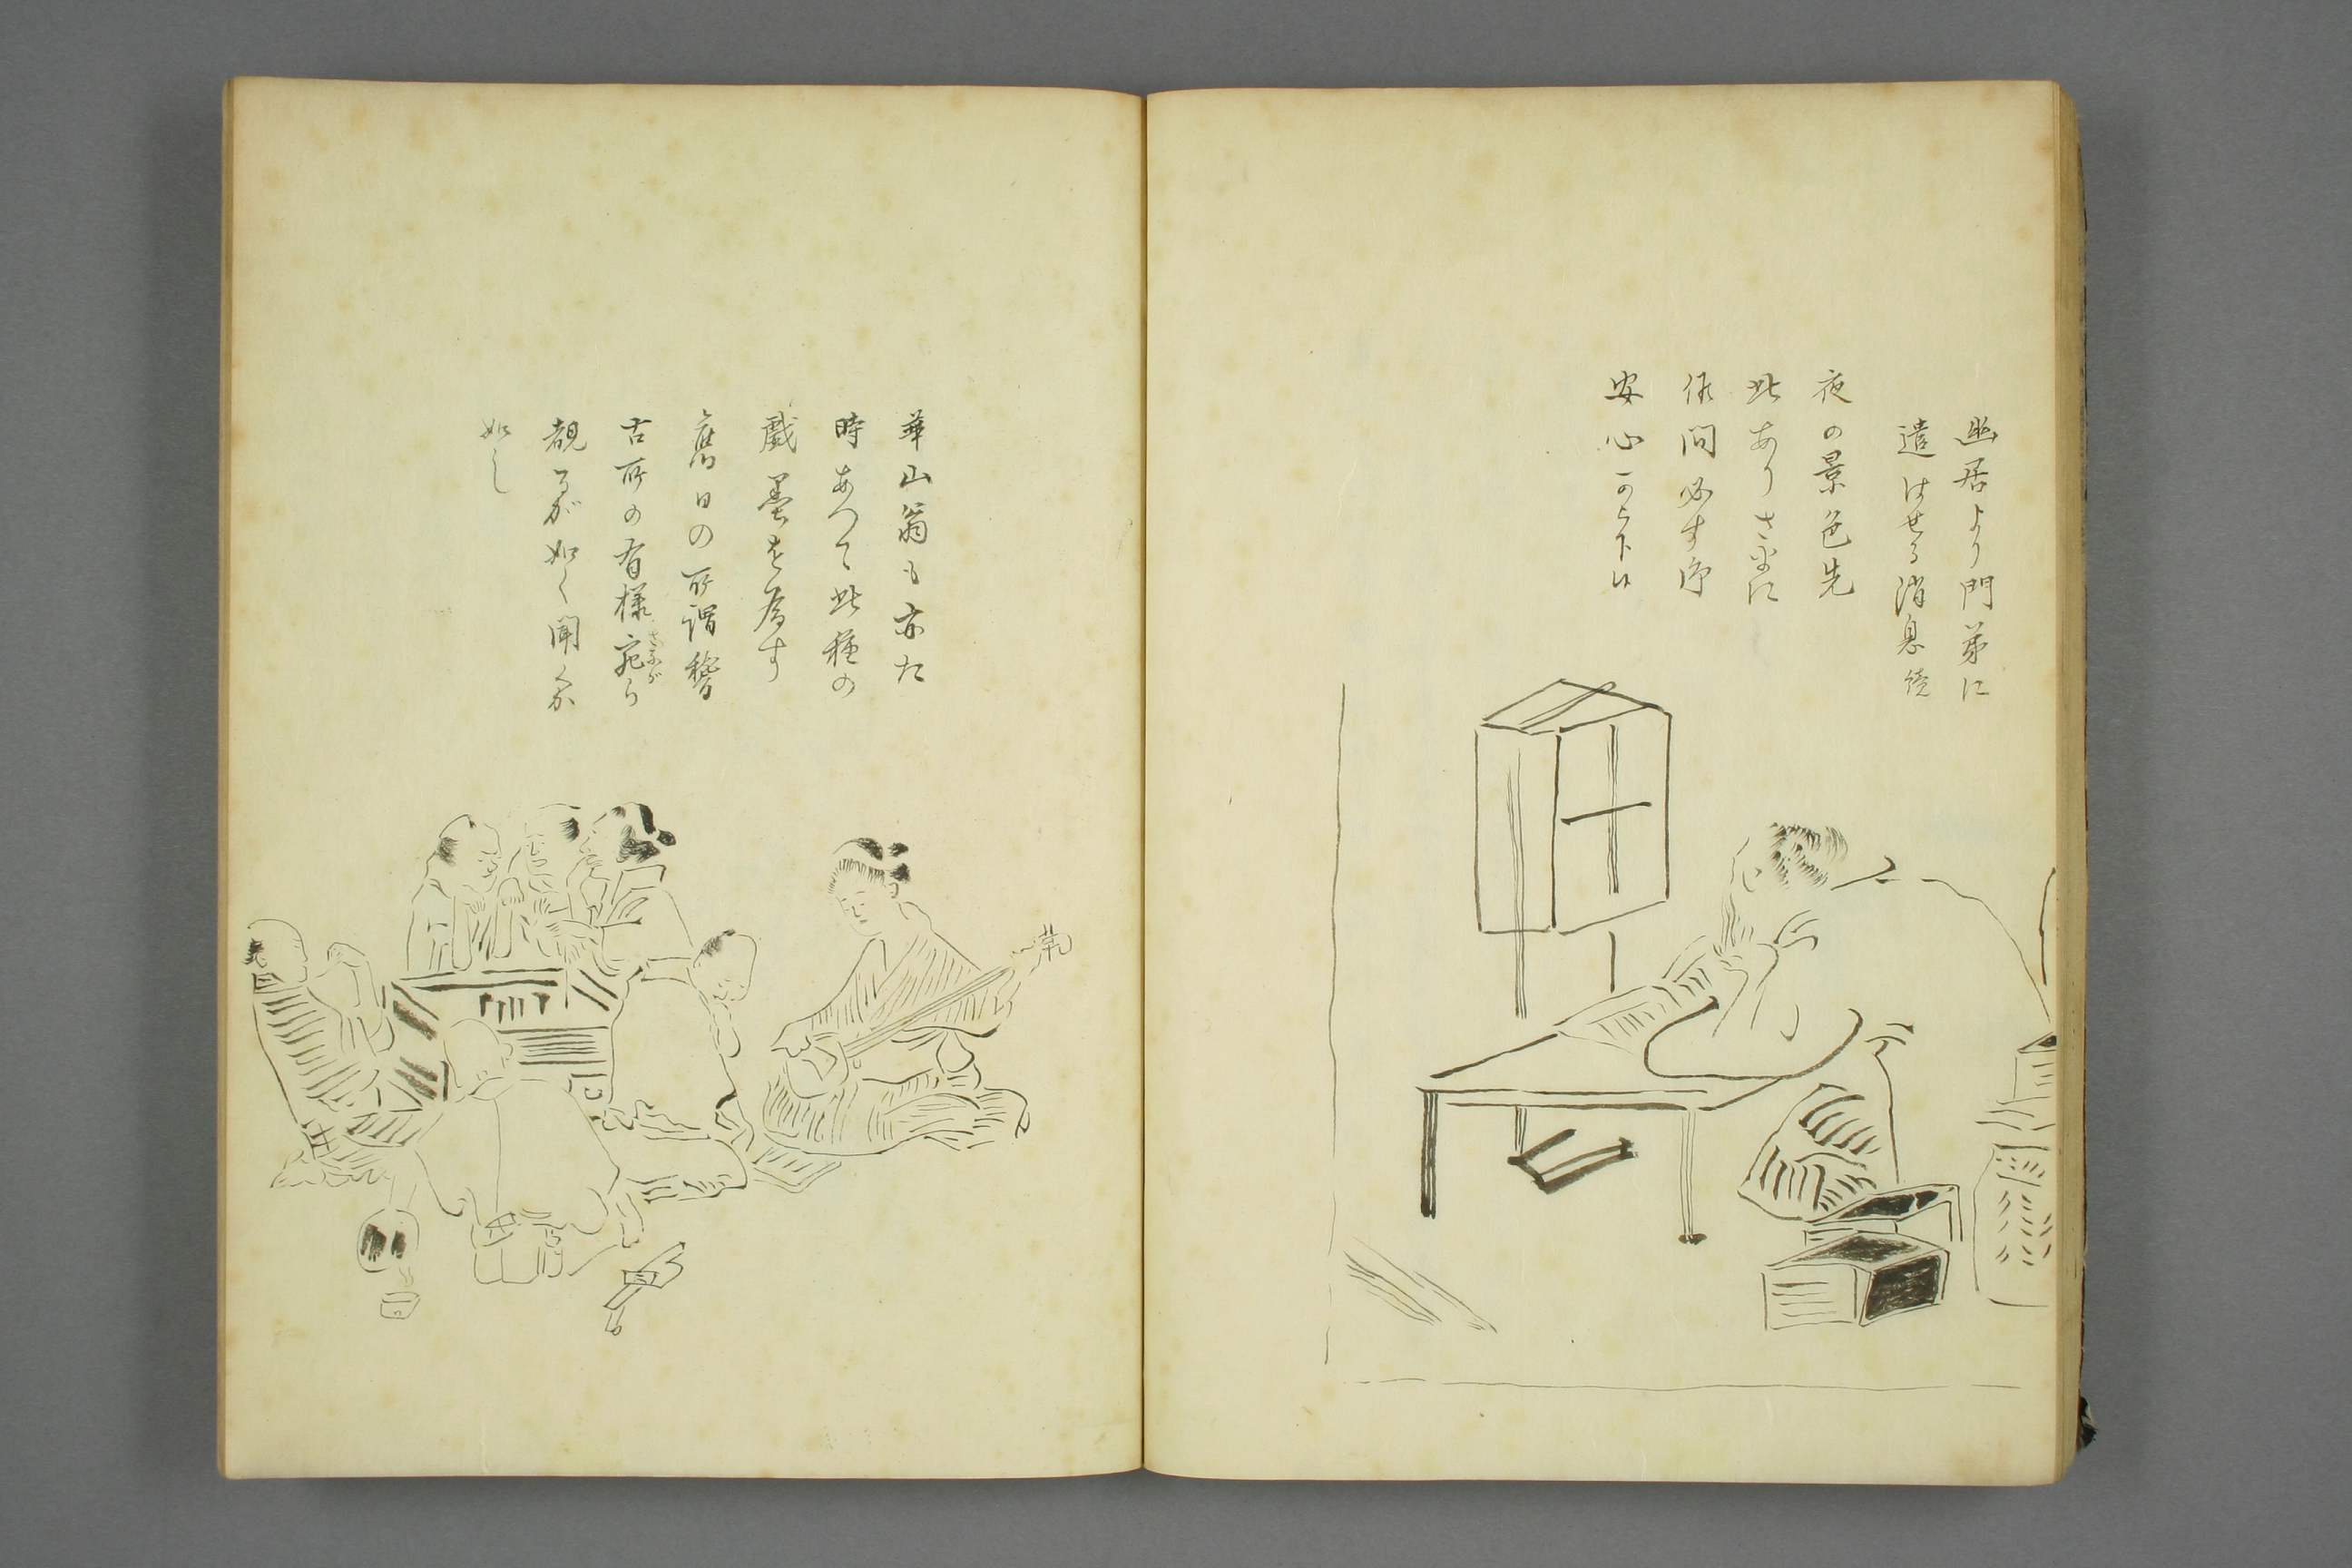 幽居より門弟に
遣はせる消息に
夜の景色先
此ありさまに
御
安心可被下候
華山翁も亦た
時あつて此種の
戯墨を為す
舊日の所謂稽
古所の有様宛ら
さながら
覩るが如く聞くが
如し